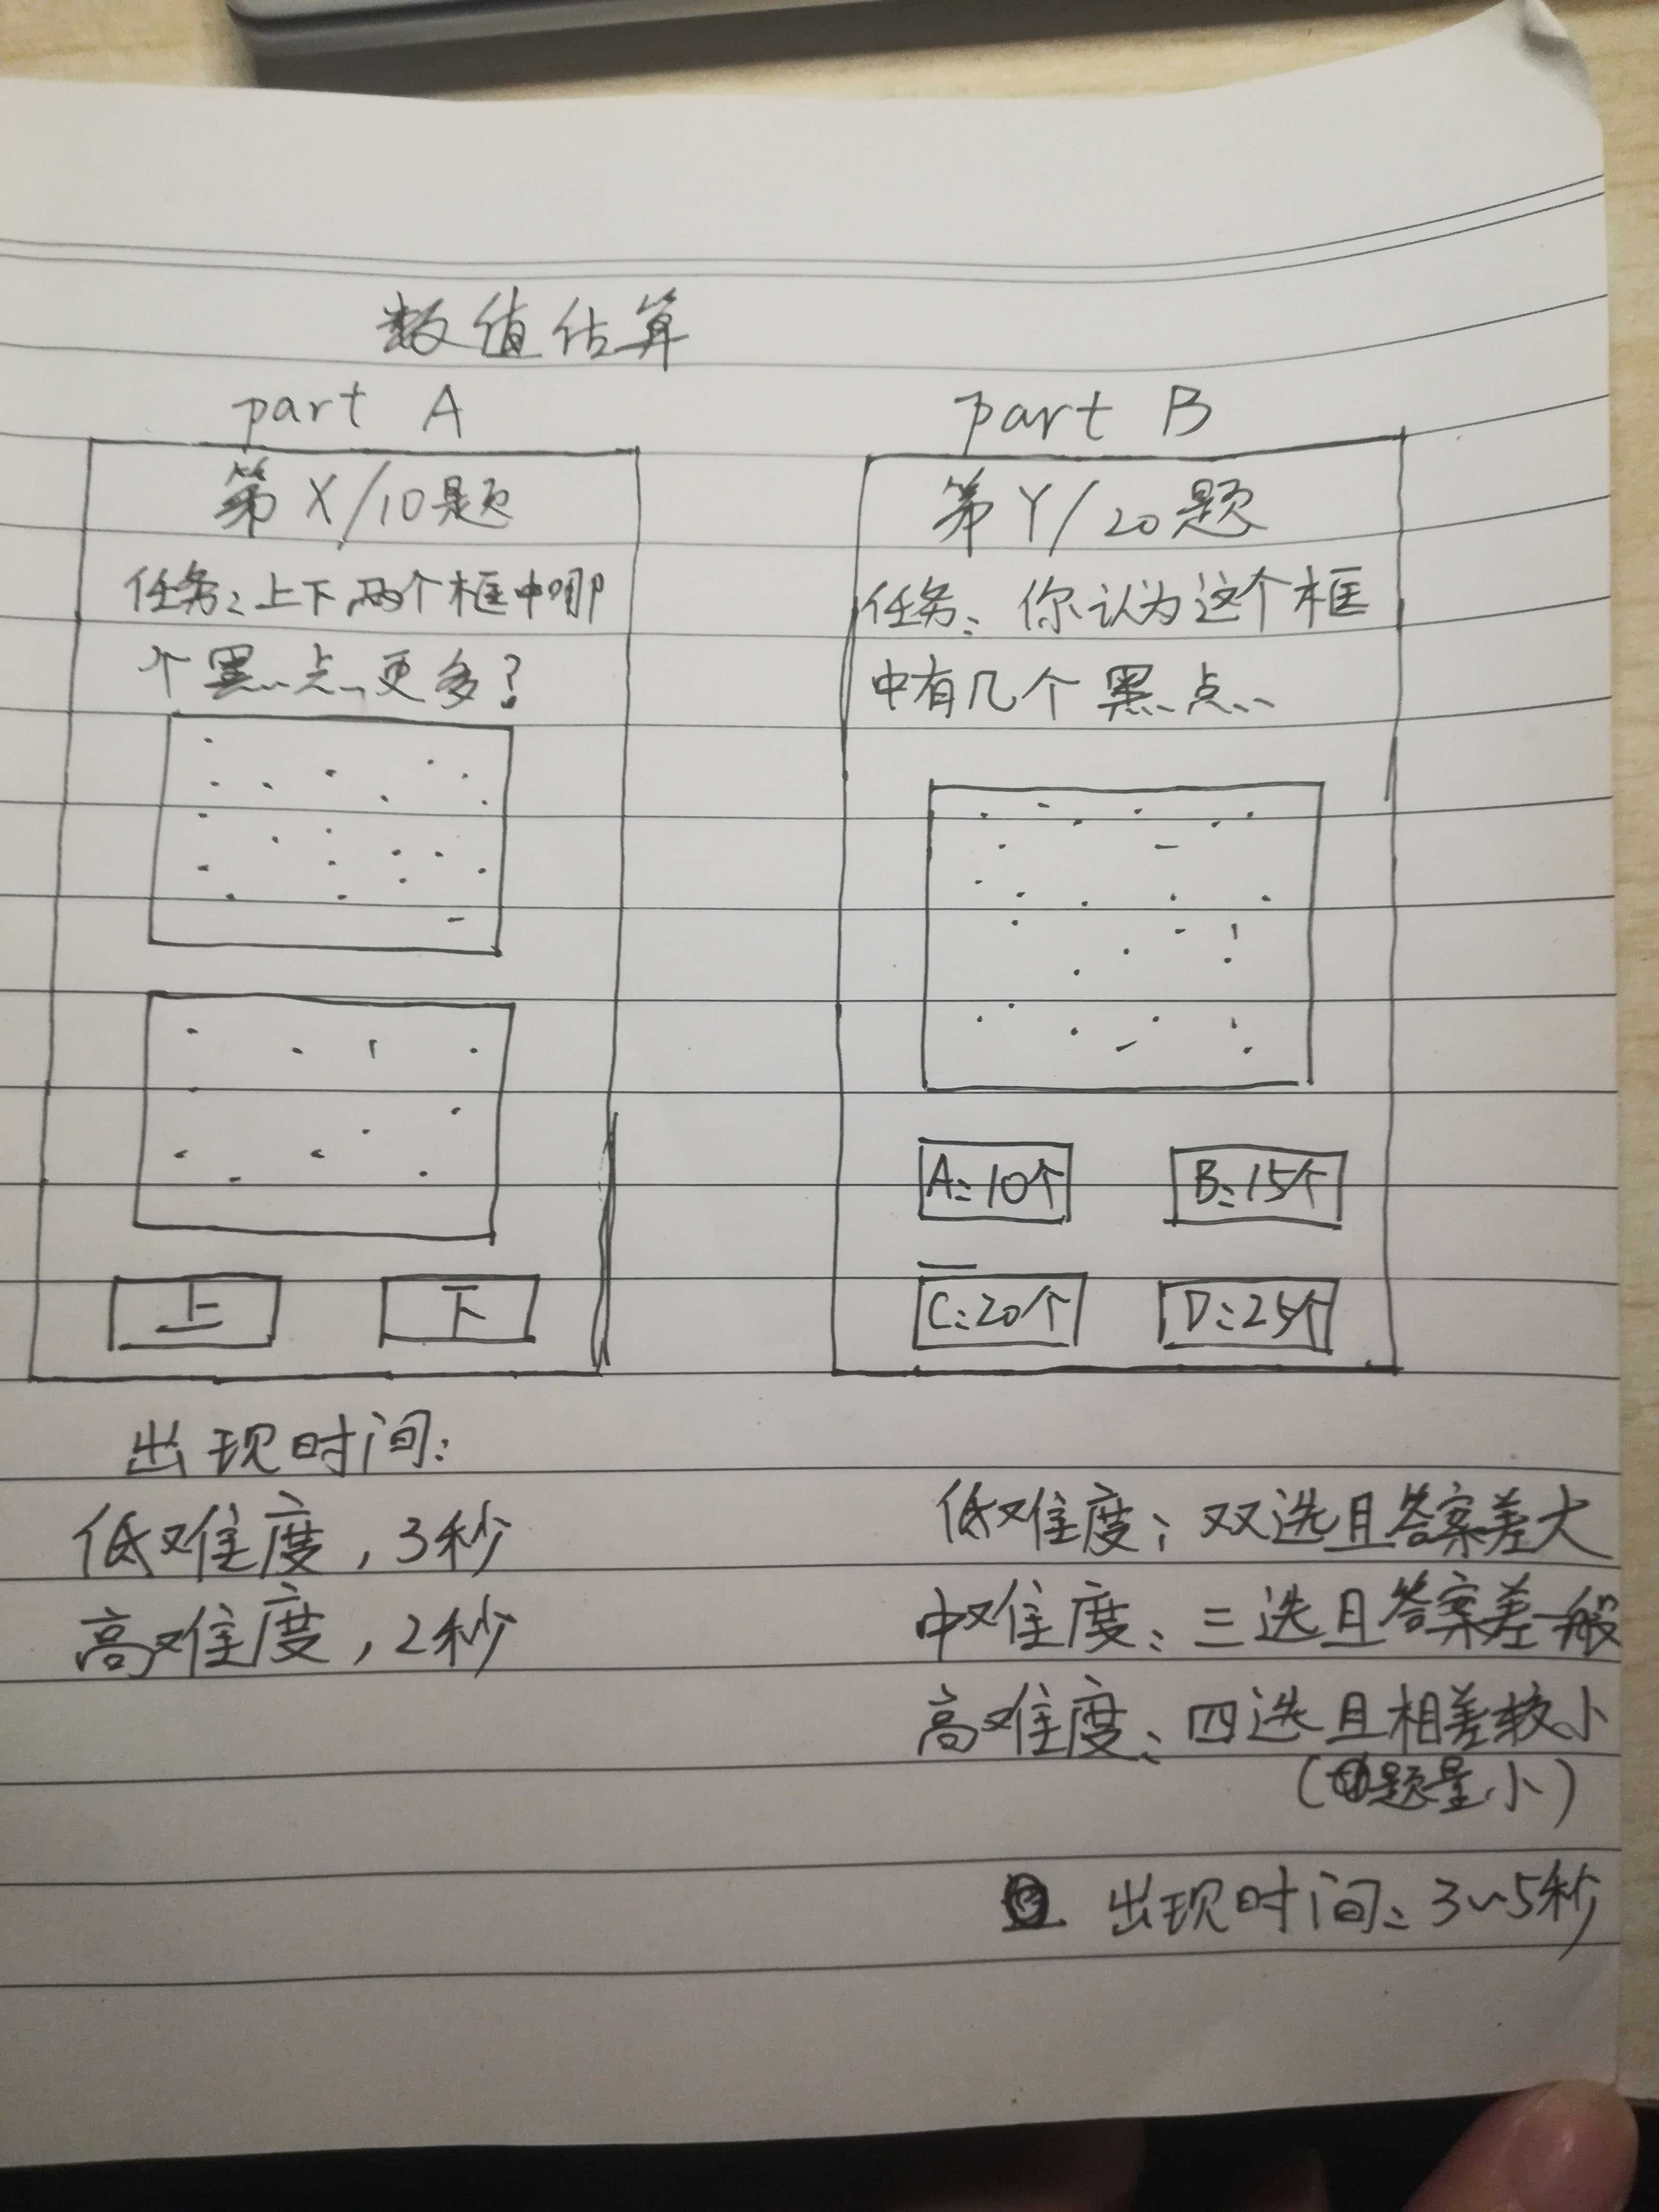 数值估算
part A
第X/10题
任务:上下两个框中哪
个黑点更多?
上
下
出现时间:
低难度,3秒
高难度,2秒
part B
第Y/20题
任务:你认为这个框
中有几个黑点
A:10个
B:15个
C:20个
D:25个
低难度:双选且答案差大
中难度:三选且答案差一般
高难度:四选且相差较小
(题量小)
出现时间:3~5秒